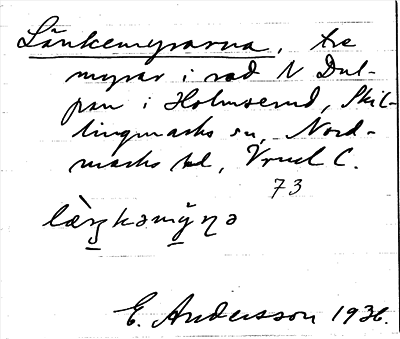 Länkemyrarna, tre
myrar i rad N Dul-
pan i Holmserud, Skil-
lingmarks sn, Nord-
marks hd, Vrml C.
73
E. Andersson 1936.